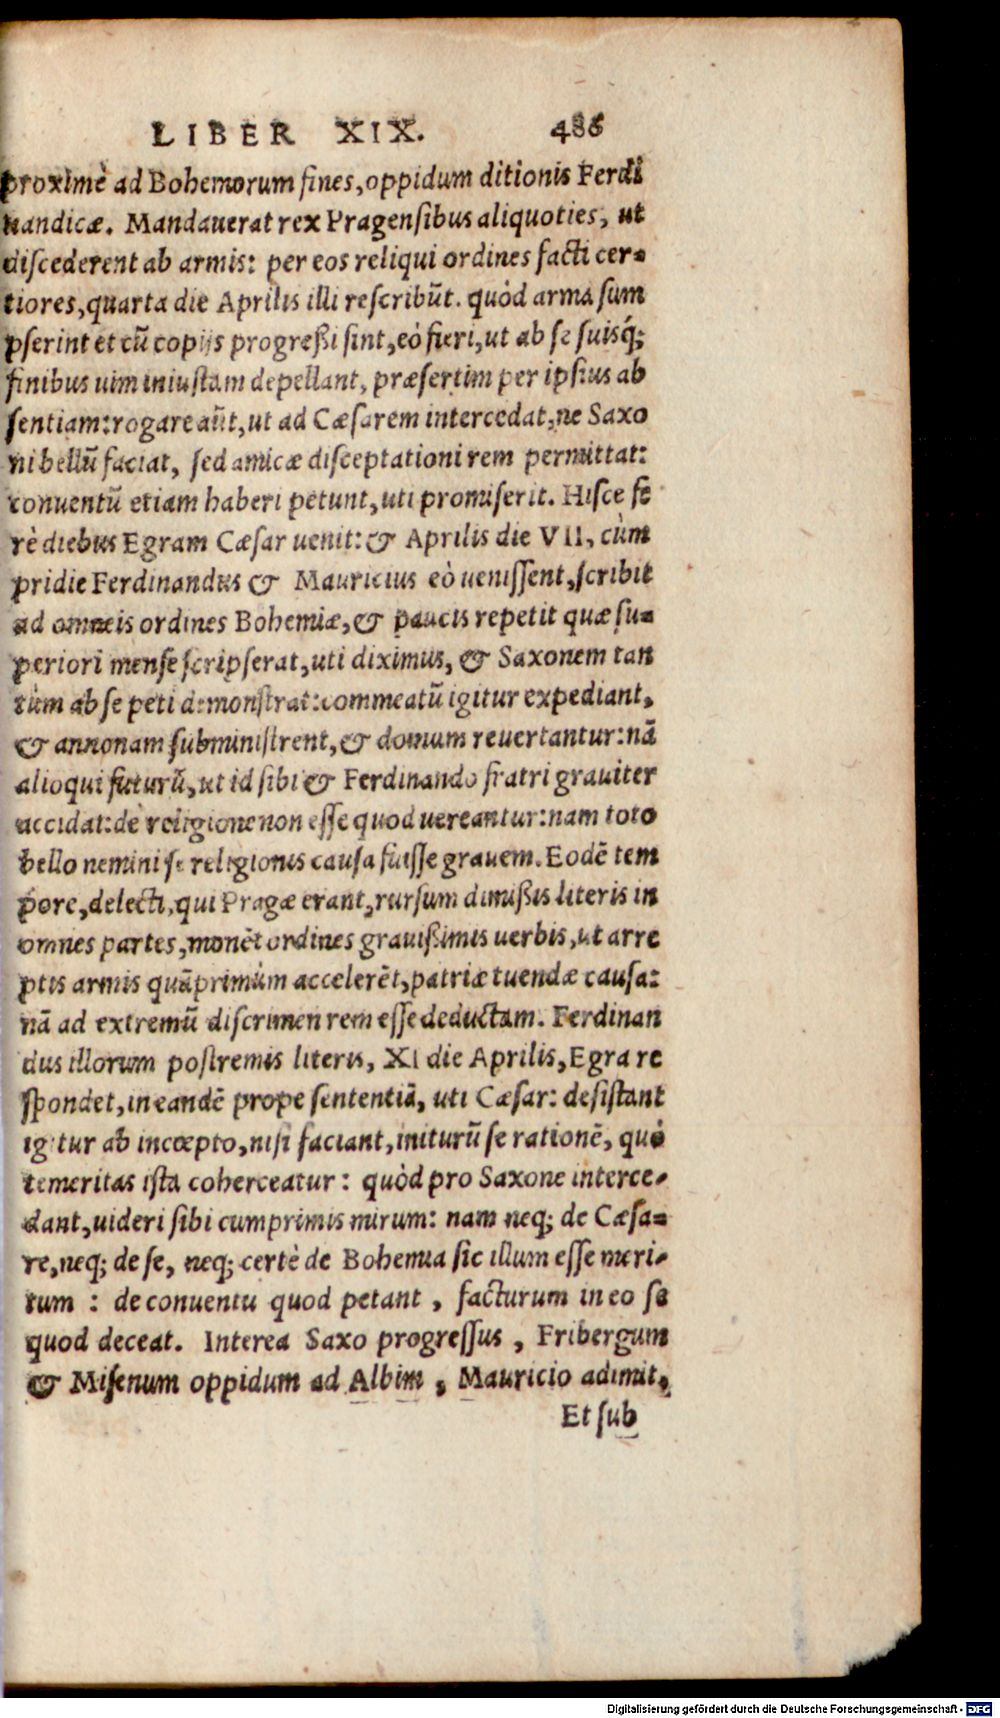 LIBER XIX. 486
proximè ad Bohemorum fines, oppidum ditionis Ferdi
nandicæ. Mandauerat rex Pragensibus aliquoties, ut
discederent ab armis: per eos reliqui ordines facti cer-
tiores, quarta die Aprilis illi rescribũt. quòd arma sum
pserint et cũ copijs progreßi sint, eò fieri, ut ab se suisq́;
finibus uim iniustam depellant, præsertim per ipsius ab
sentiam: rogare aũt, ut ad Cæsarem intercedat, ne Saxo
ni bellũ faciat, sed amicæ disceptationi rem permittat:
conuentũ etiam haberi petunt, uti promiserit. Hisce fe
rè diebus Egram Cæsar uenit: & Aprilis die VII, cùm
pridie Ferdinandus & Mauricius eò uenissent, scribit
ad omneis ordines Bohemiæ, & paucis repetit quæ su-
periori mense scripserat, uti diximus, & Saxonem tan
tùm ab se peti demonstrat: commeatũ igitur expediant,
& annonam subministrent, & domum reuertantur: nã
alioqui futurũ, ut id sibi & Ferdinando fratri grauiter
accidat: de religione non esse quod uereantur: nam toto
bello nemini se religionis causa fuisse grauem. Eodẽ tem
pore, delecti, qui Pragæ erant, rursum dimißis literis in
omnes partes, monẽt ordines grauißimis uerbis, ut arre
ptis armis quãprimùm accelerẽt, patriæ tuendæ causa:
nã ad extremũ discrimen rem esse deductam. Ferdinan
dus illorum postremis literis, XI die Aprilis, Egra re
spondet, in eandẽ prope sententiã, uti Cæsar: desistant
igitur ab incœpto, nisi faciant, initurũ se rationẽ, quó
temeritas ista coherceatur: quòd pro Saxone interce-
dant, uideri sibi cumprimis mirum: nam neq; de Cæsa-
re, neq; de se, neq; certè de Bohemia sic illum esse meri-
tum : de conuentu quod petant , facturum in eo se
quod deceat. Interea Saxo progressus , Fribergum
& Misenum oppidum ad Albim , Mauricio adimit.
Et sub
Digitalisierung gefördert durch die Deutsche Forschungsgemeinschaft - DFG